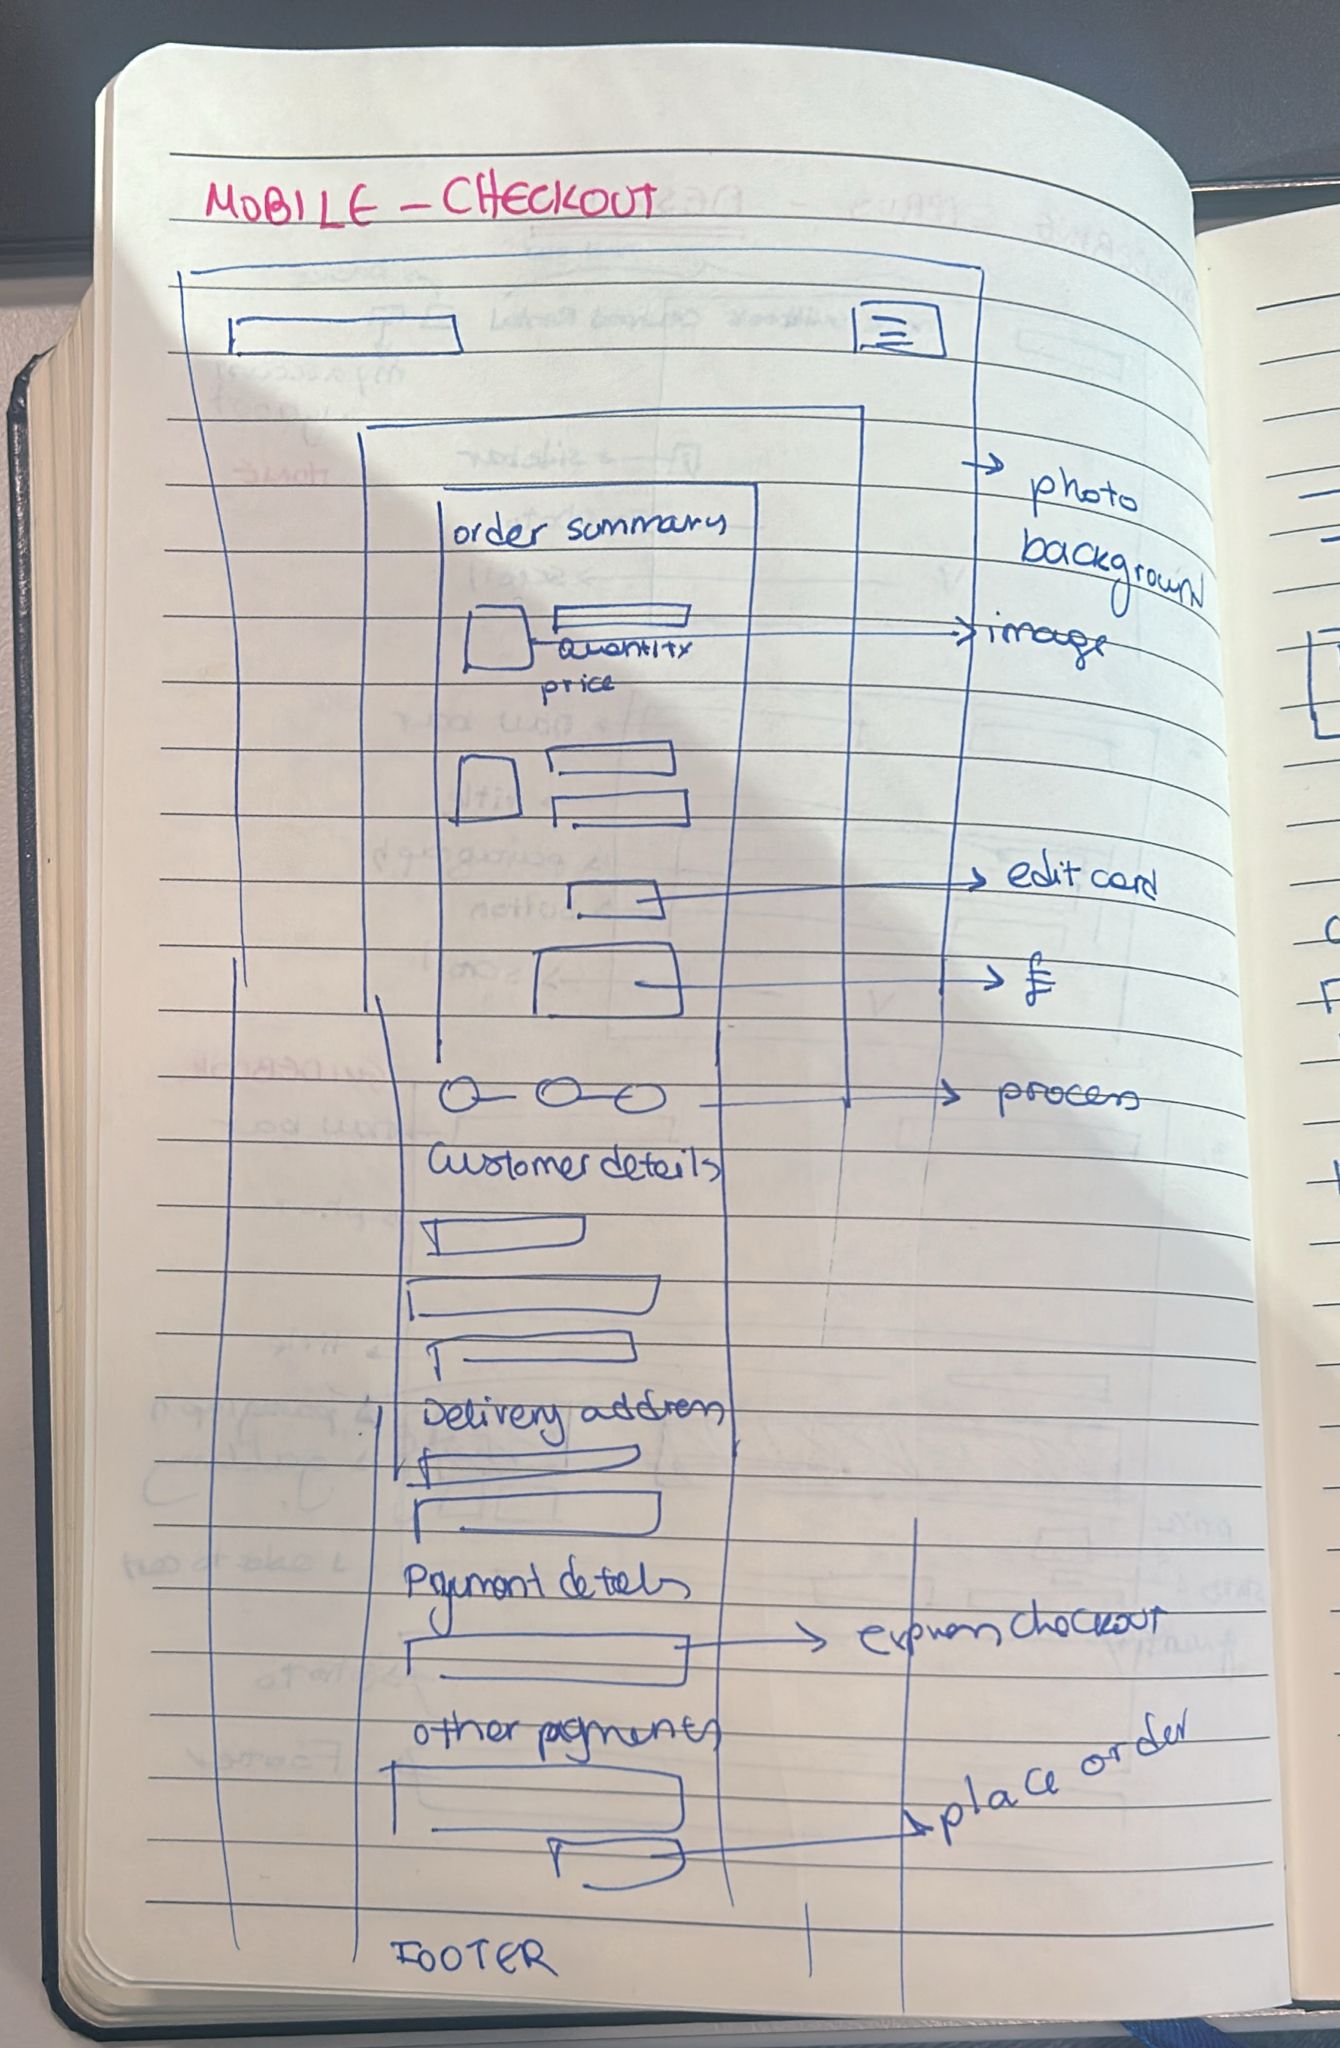 MOBILE - CHECKOUT
photo
background
order summary
image
quantity
price
edit card
£
process
Customer details
Delivery address
Payment details
express checkout
other payments
place order
FOOTER